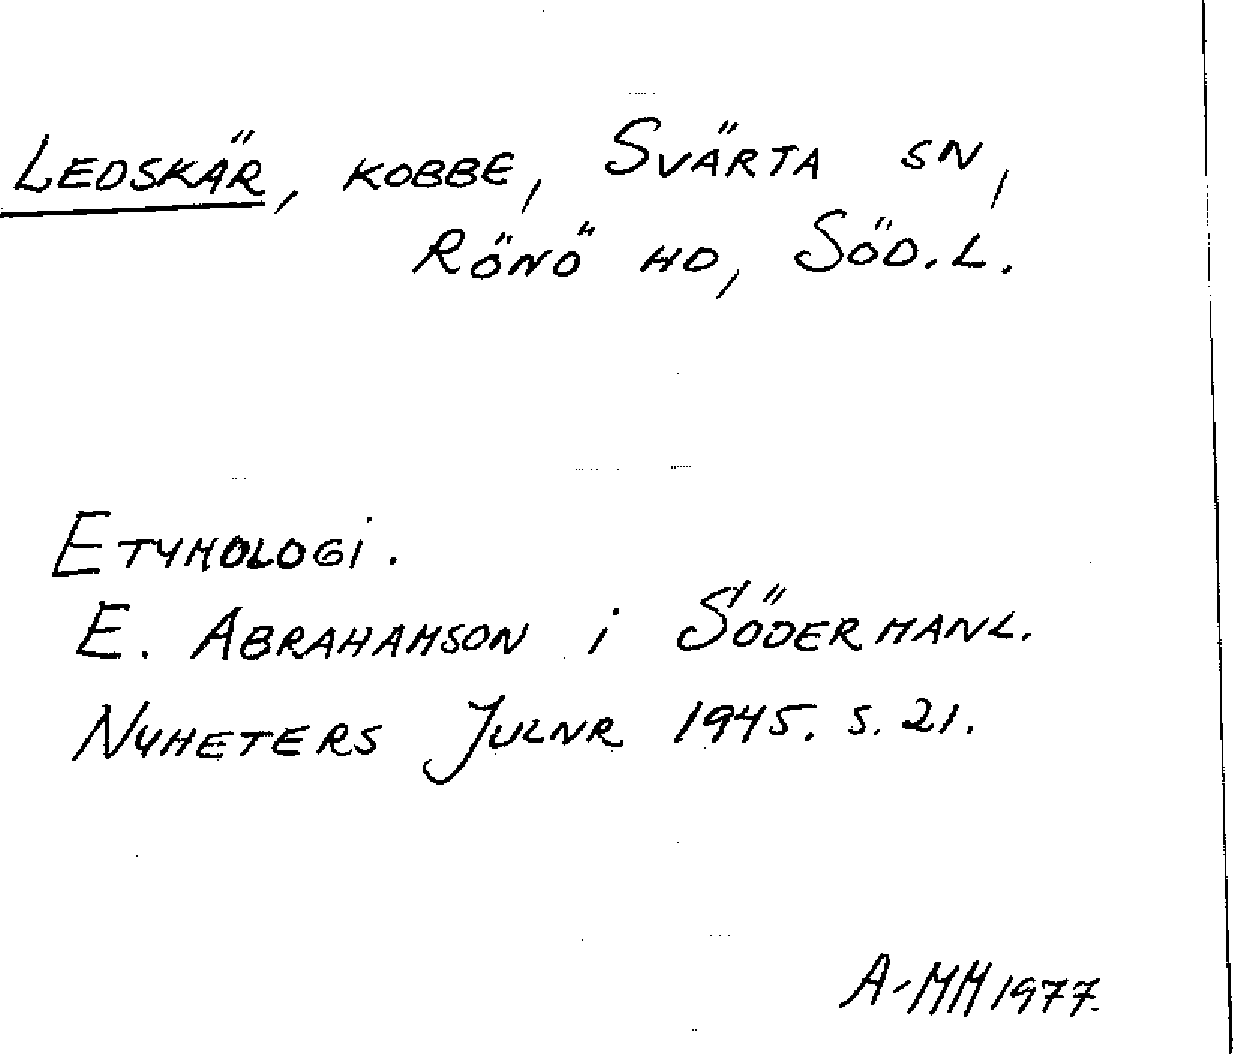 LEDSKÄR, KOBBE, SVÄRTA SN,
RÖNÖ HD, SÖD.L.
ETYMOLOGI.
E. ABRAHAMSON i SÖDERMANL.
NYHETERS JULNR 1945. S. 21.
A-MM 1977.